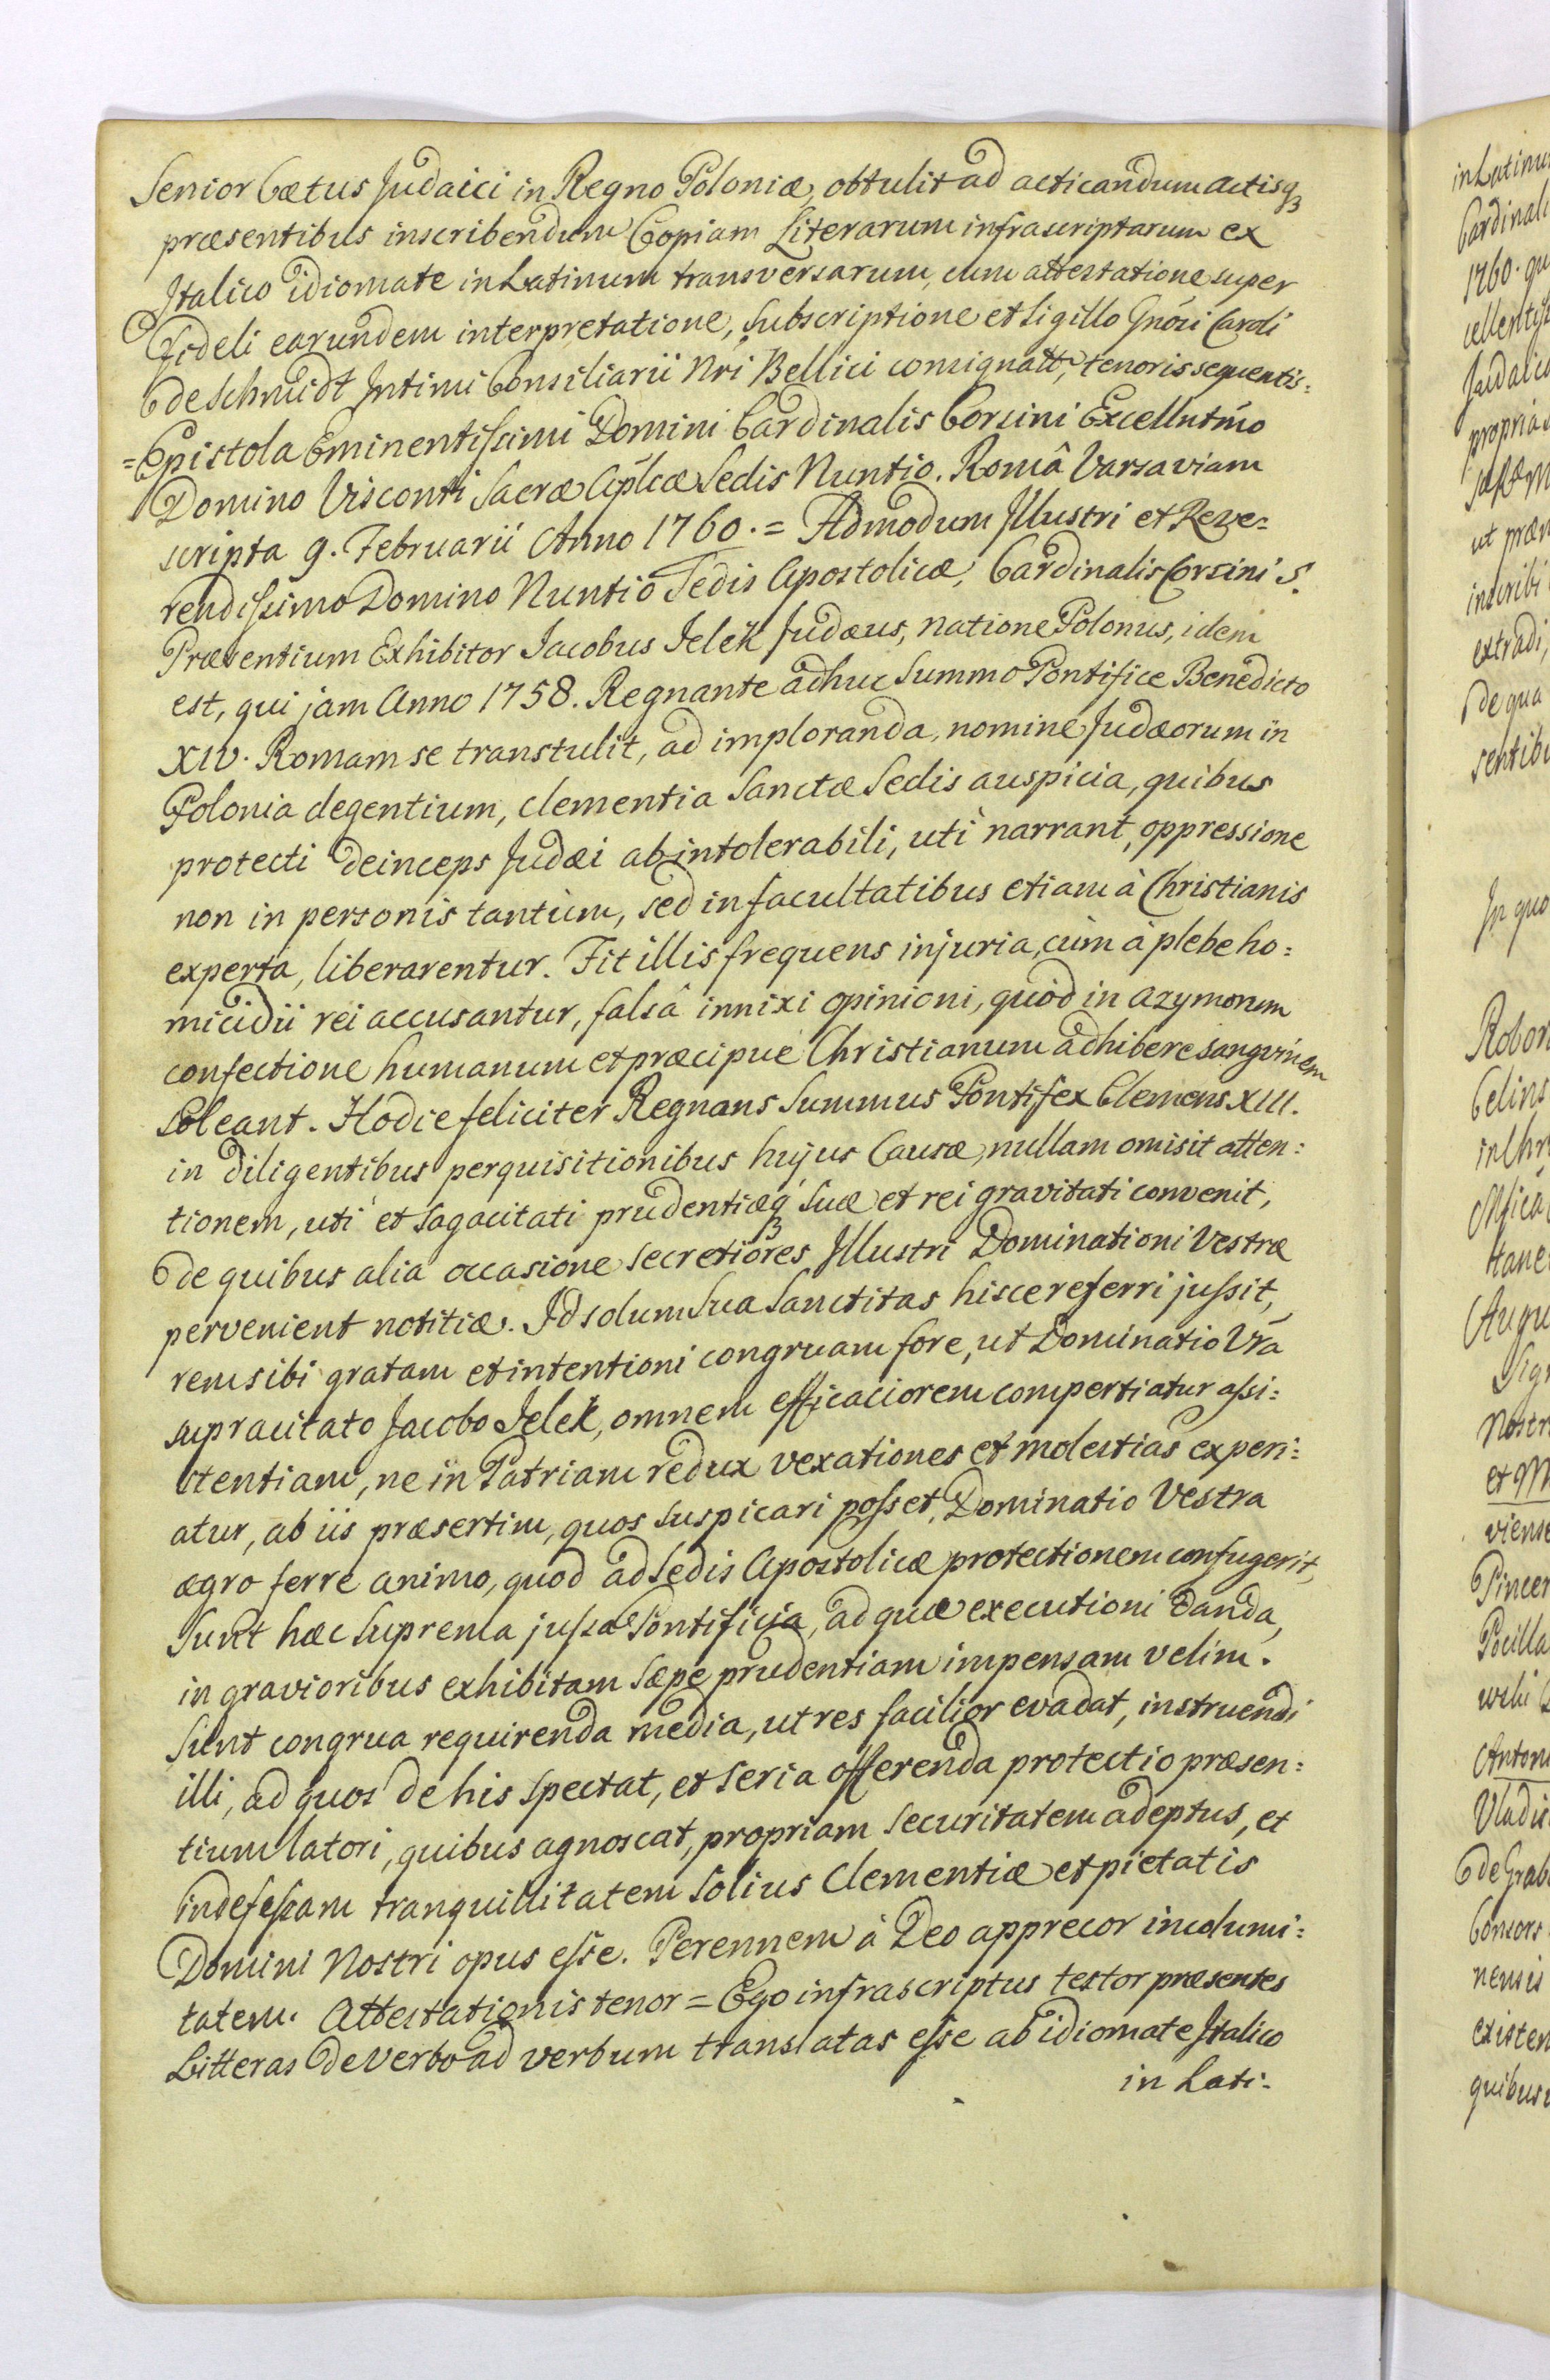 Senior Cætus Judaici in Regno Poloniæ, obtulit ad acticandum actisq3
præsentibus inscribendum Copiam Literarum infrascriptarum ex
Italico idiomate in Latinum transversarum, cum attestatione super
fideli earundem interpretatione, subscriptione et Sigillo Gnõsi Caroli
de Schmidt Intimi Consiliarii Nri Bellici consignatt, tenoris sequentis:
= Epistola Eminentissimi Domini Cardinalis Corsini Excellntmo
Domino Visconti Sacræ Aplcæ Sedis Nuntio. Româ Varsaviam
scripta 9. Februarii Anno 1760. = Admodum Illustri et Reve=
rendissimo Domino Nuntio Sedis Apostolicæ, Cardinalis Corsini S.
Præsentium Exhibitor Jacobus Jelek Judæus, natione Polonus, idem
est, qui jam Anno 1758. Regnante adhuc Summo Pontifice Benedicto
XIV. Romam se transtulit, ad imploranda, nomine Judæorum in
Polonia degentium, clementia Sanctæ Sedis auspicia, quibus
protecti deinceps Judæi ab intolerabili, uti narrant, oppressione
non in personis tantùm, sed in facultatibus etiam à Christianis
experta, liberarentur. Fit illis frequens injuria, cùm à plebe ho=
micidii rei accusantur, falsâ innixi opinioni, quòd in azymorum
confectione humanum et præcipuè Christianum adhibere sangvinem
soleant. Hodie feliciter Regnans Summus Pontifex Clemens XIII.
in diligentibus perquisitionibus hujus Causæ, nullam omisit atten=
tionem, uti et sagacitati prudentiæq3 suæ et rei gravitati convenit,
de quibus alia occasione secretiores Illustri Dominationi Vestræ
pervenient notitiæ. Id solum Sua Sanctitas hisce referri jussit,
rem sibi gratam et intentioni congruam fore, ut Dominatio Vrã
supracitato Jacobo Jelek, omnem efficaciorem compertiatur assi=
stentiam, ne in Patriam redux vexationes et molestias experi=
atur, ab iis præsertim, quos suspicari posset, Dominatio Vestra
ægro ferre animo, quod ad Sedis Apostolicæ protectionem confugerit,
Sunt hæc suprema jussa Pontificia, ad quæ executioni danda,
in gravioribus exhibitam sæpe prudentiam impensam velim.
Sunt congrua requirenda media, ut res facilior evadat, instruendi
illi, ad quos de his spectat, et seria offerenda protectio præsen=
tium latori, quibus agnoscat, propriam securitatem adeptus, et
indefessam tranquillitatem solius Clementiæ et pietatis
Domini Nostri opus esse. Perennem à Deo apprecor incolumi=
tatem. Attestationis tenor = Ego infrascriptus testor præsentes
Litteras de verbo ad verbum translatas esse ab idiomate Italico
in Lati-